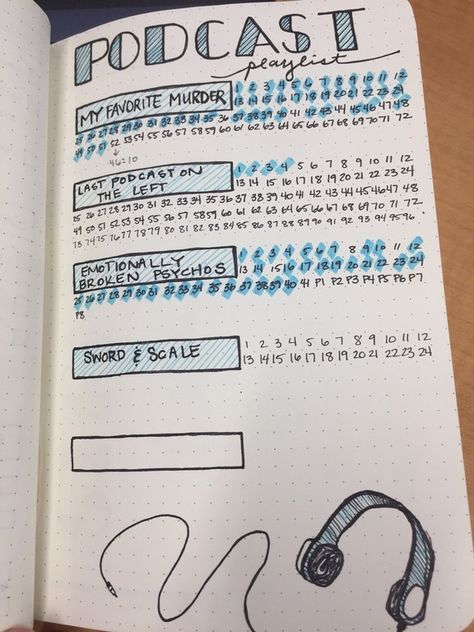 PODCAST
playlist
MY FAVORITE MURDER
1 2 3 4 5 6 7 8 9 10 11 12
13 14 15 16 17 18 19 20 21 22 23 24
25 26 27 28 29 30 31 32 33 34 35 36 37 38 39 40 41 42 43 44 45 46 47 48
49 50 51 52 53 54 55 56 57 58 59 60 61 62 63 64 65 66 67 68 69 70 71 72
46:10
LAST PODCAST ON THE LEFT
1 2 3 4 5 6 7 8 9 10 11 12
13 14 15 16 17 18 19 20 21 22 23 24
25 26 27 28 29 30 31 32 33 34 35 36 37 38 39 40 41 42 43 44 45 46 47 48
49 50 51 52 53 54 55 56 57 58 59 60 61 62 63 64 65 66 67 68 69 70 71 72
73 74 75 76 77 78 79 80 81 82 83 84 85 86 87 88 89 90 91 92 93 94 95 96
EMOTIONALLY BROKEN PSYCHOS
1 2 3 4 5 6 7 8 9 10 11 12
13 14 15 16 17 18 19 20 21 22 23 24
25 26 27 28 29 30 31 32 33 34 35 36 37 38 39 40 41 P1 P2 P3 P4 P5 P6 P7
P8
SWORD & SCALE
1 2 3 4 5 6 7 8 9 10 11 12
13 14 15 16 17 18 19 20 21 22 23 24